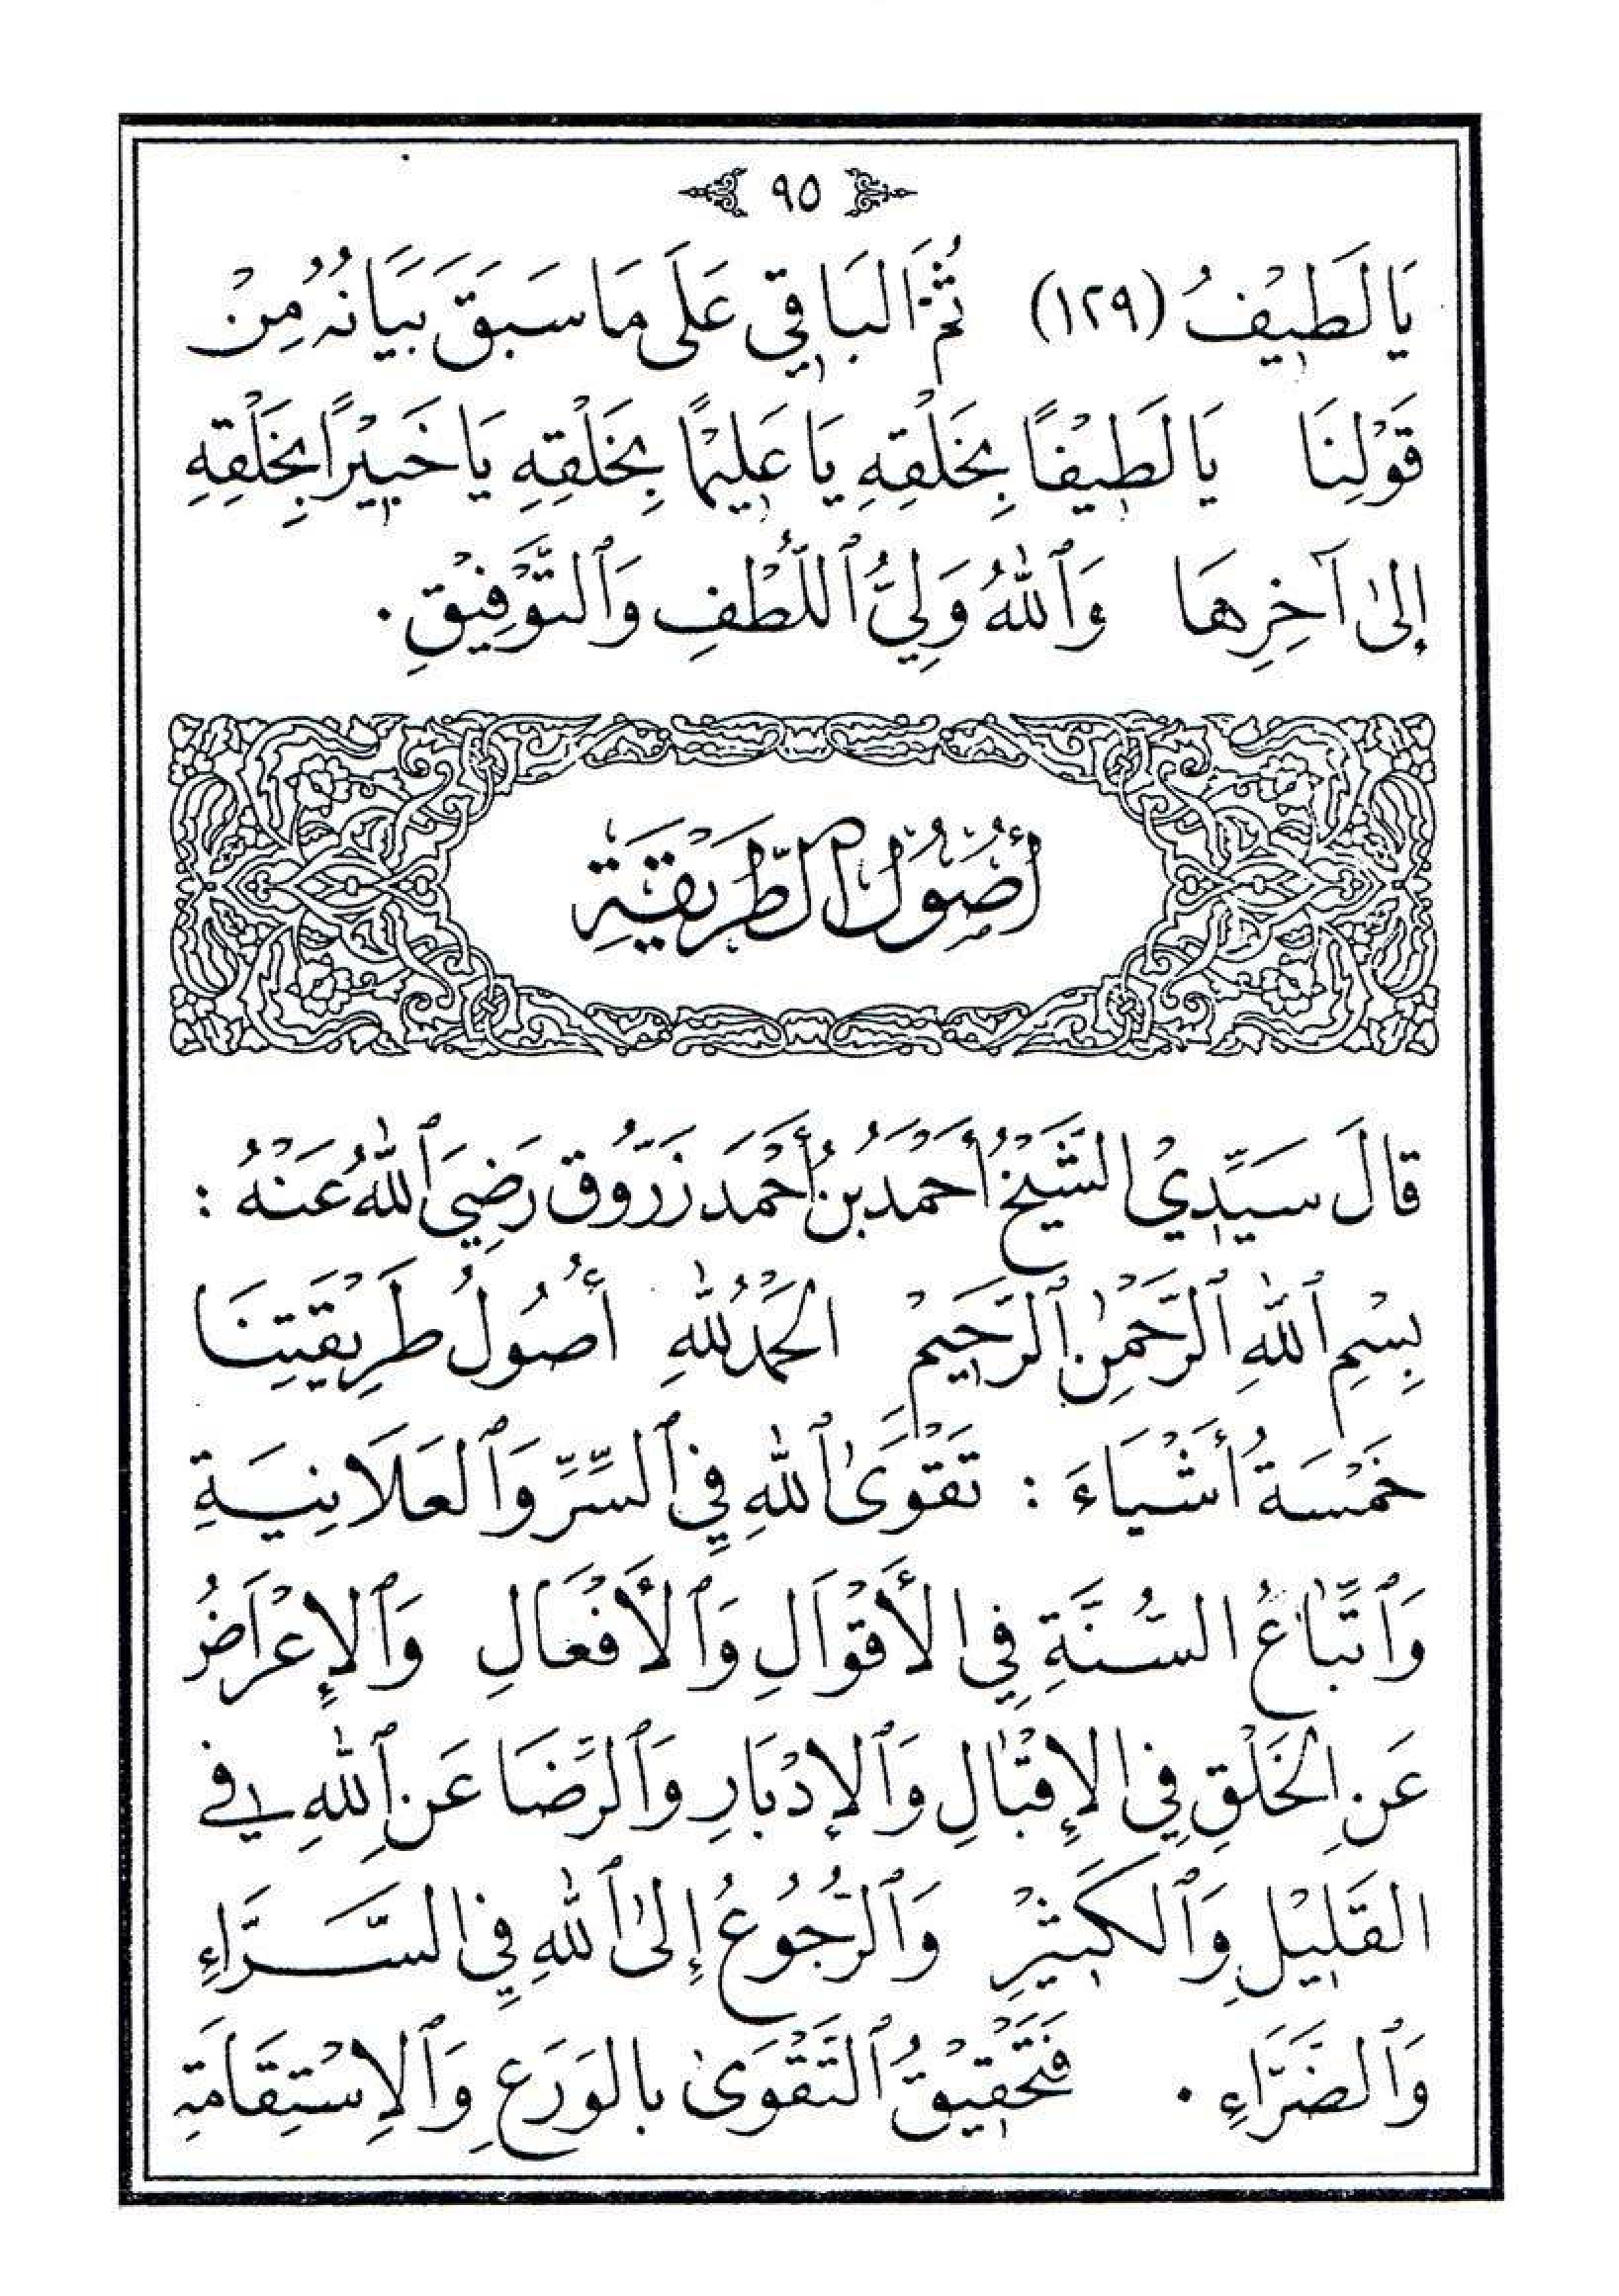 ٩٥
يَا لَطِيْفُ (١٢٩) ثُمَّ البَاقِي عَلَى مَا سَبَقَ بَيَانُهُ مِنْ
قَوْلِنَا يَا لَطِيْفًا بِخَلْقِهِ يَا عَلِيْمًا بِخَلْقِهِ يَا خَبِيْرًا بِخَلْقِهِ
إِلىٰ آخِرِهَا وَٱللهُ وَلِيُّ ٱللُّطْفِ وَٱلتَّوْفِيْقِ .
أُصُوْلُ الطَّرِيْقَةِ
قَالَ سَيِّدِيْ الشَّيْخُ أَحْمَدُ بْنُ أَحْمَدَ زَرُّوق رَضِيَ ٱللهُ عَنْهُ :
بِسْمِ ٱللهِ ٱلرَّحْمٰنِ ٱلرَّحِيْمِ الحَمْدُ لِلّٰهِ أُصُوْلُ طَرِيْقَتِنَا
خَمْسَةُ أَشْيَاءَ : تَقْوَىٰ ٱللهِ فِي ٱلسِّرِّ وَٱلعَلَانِيَةِ
وَٱتِّبَاعُ السُّنَّةِ فِي الأَقْوَالِ وَٱلأَفْعَالِ وَٱلإِعْرَاضُ
عَنِ الخَلْقِ فِي الإِقْبَالِ وَٱلإِدْبَارِ وَٱلرِّضَا عَنِ ٱللهِ فِي
القَلِيْلِ وَٱلكَثِيْرِ وَٱلرُّجُوْعُ إِلىٰ ٱللهِ فِي السَّرَّاءِ
وَٱلضَّرَّاءِ . فَتَحْقِيْقُ ٱلتَّقْوَىٰ بِالوَرَعِ وَٱلاِسْتِقَامَةِ